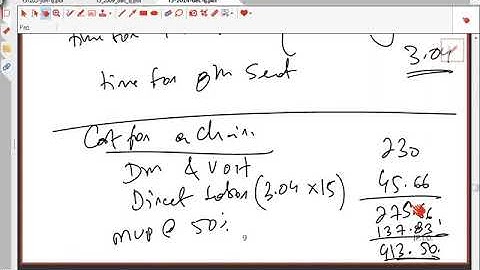 time for
3.04
time for 8th Seat
Cost for a chair
Dm & VOH 230
Direct Labor (3.04 × 15) 45.66
275.66
mup @ 50% 137.83
9
413.50